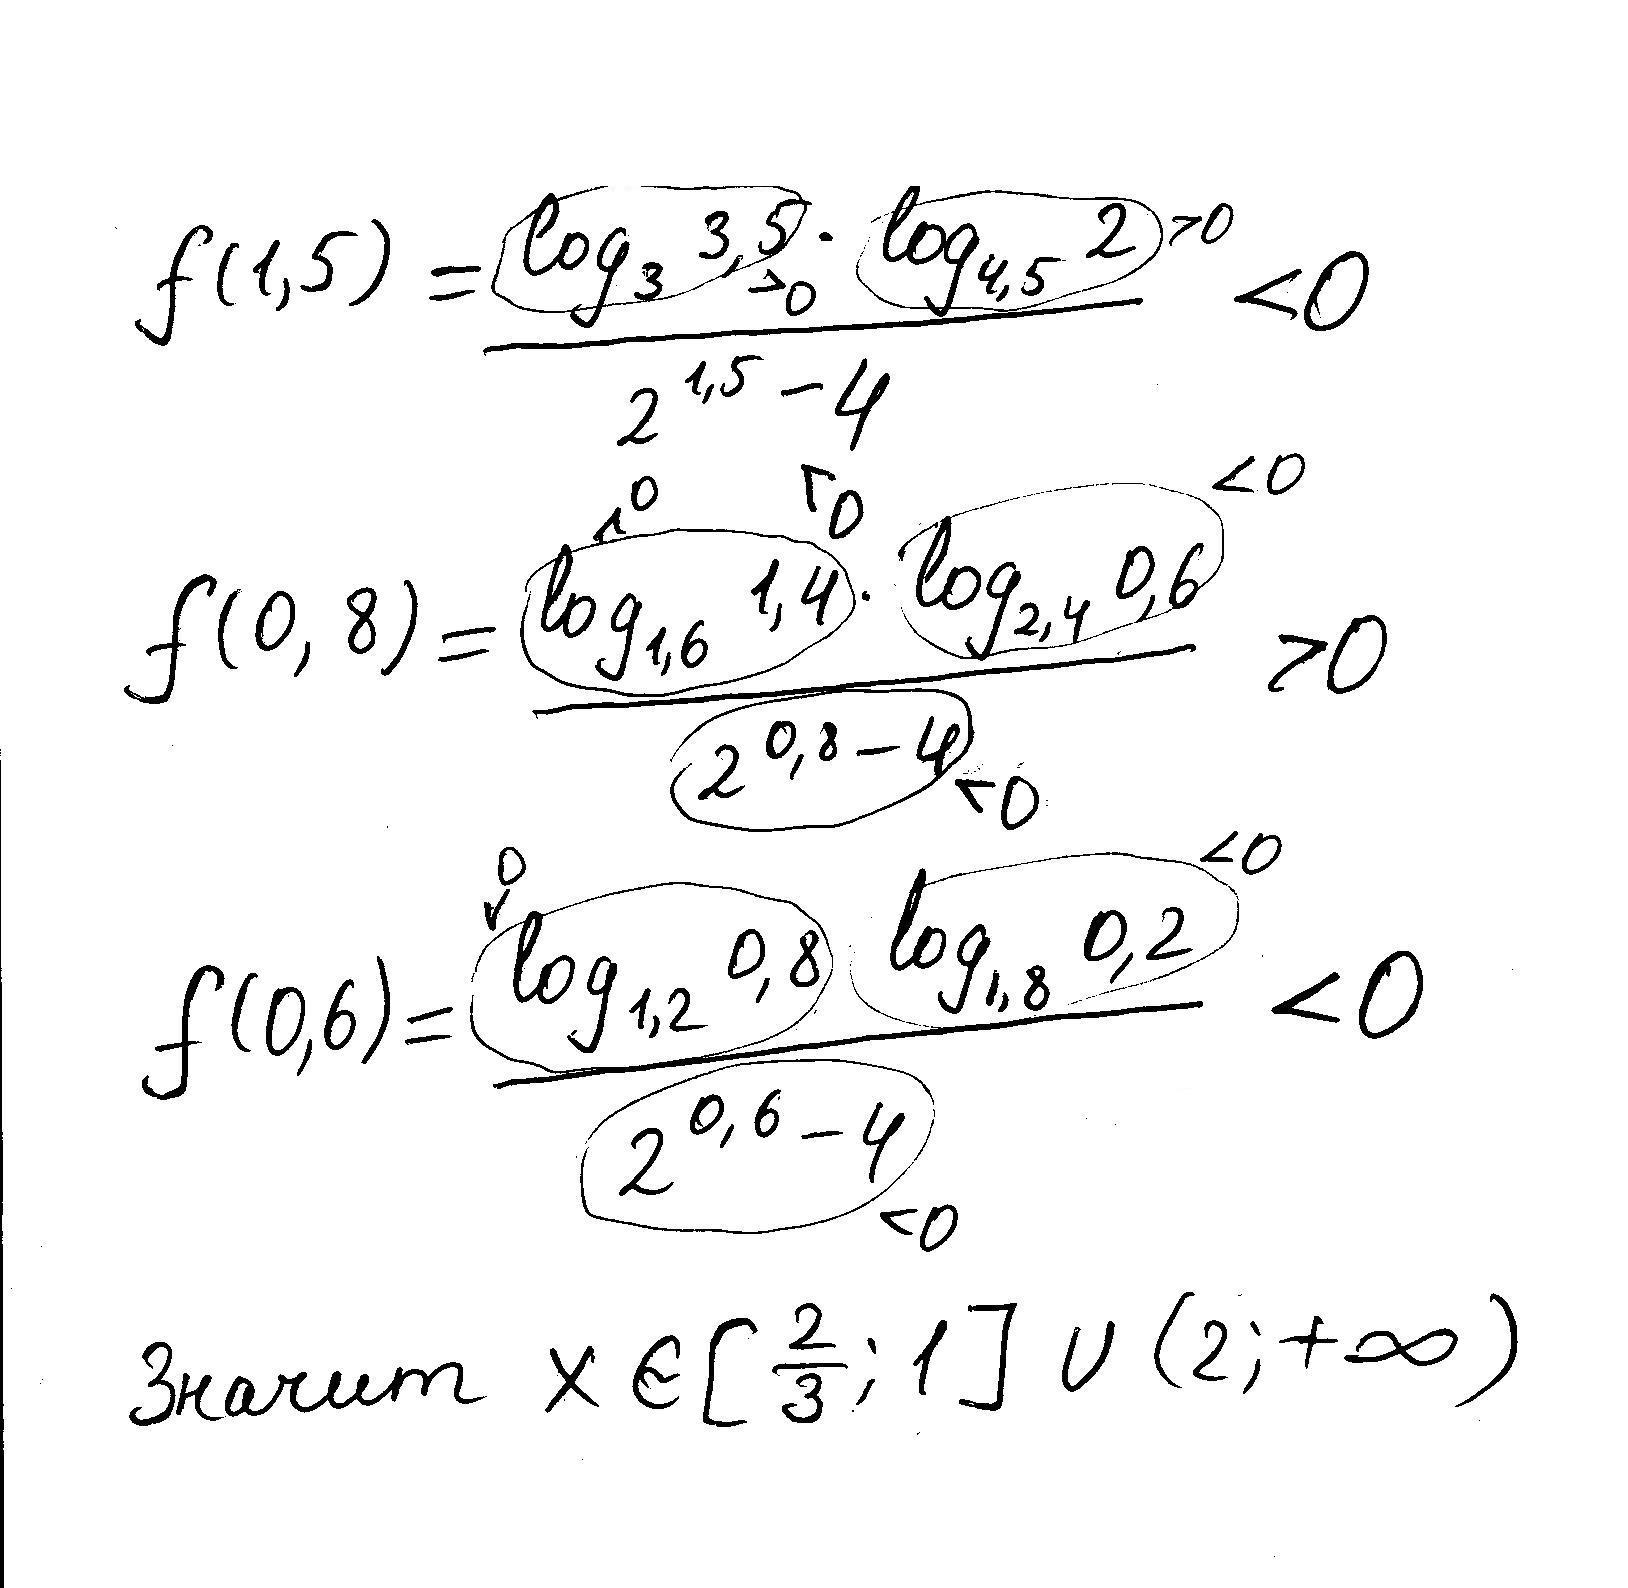 f(1,5) = log₃ 3,5 · log₄,₅ 2 >0 <0
>0
2^1,5 − 4
>0 >0 <0
f(0,8) = log₁,₆ 1,4 · log₂,₄ 0,6 >0
2^0,8 − 4 <0
0 <0
f(0,6) = log₁,₂ 0,8 log₁,₈ 0,2 <0
2^0,6 − 4
<0
Значит x ∈ [2/3; 1] ∪ (2; +∞)